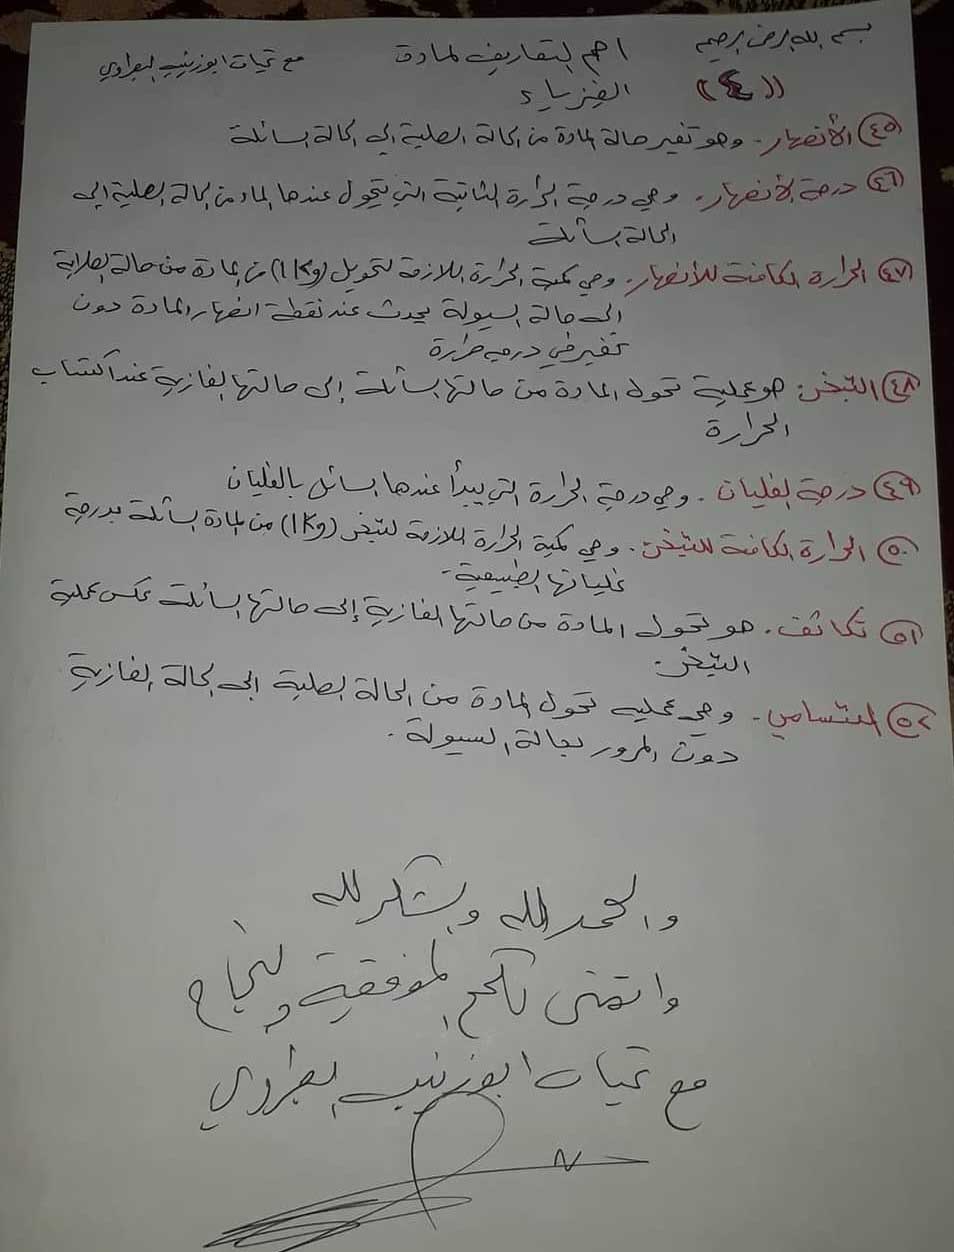 بسم الله الرحمن الرحيم
اهم التعاريف لمادة
مع تحيات ابو زينب البعراوي
((٤))
الفيزياء
٤٥ الأنصهار. وهو تغير حالة المادة من الحالة الصلبة إلى الحالة السائلة
٤٦ درجة الأنصهار. وهي درجة الحرارة الثابتة التي يتحول عندها المادة من الحالة الصلبة الى
الحالة السائلة
٤٧ الحرارة الكامنة للأنصهار. وهي كمية الحرارة اللازمة لتحويل (1Kg) من المادة من حالة الصلابة
الى حالة السيولة يحدث عند نقطة انصهار المادة دون
تغير في درجه حرارة
٤٨ التبخر: هو عملية تحول المادة من حالتها السائلة إلى حالتها الغازية عند اكتساب
الحرارة
٤٩ درجة الغليان. وهي درجة الحرارة التي يبدأ عندها السائل بالغليان
٥٠ الحرارة الكامنة للتبخر. وهي كمية الحرارة اللازمة لتبخر (1Kg) من المادة السائلة بدرجة
غليانها الطبيعية-
٥١ تكاثف. هو تحول المادة من حالتها الغازية إلى حالتها السائلة عكس عملية
التبخر.
٥٢ التسامي. وهي عمليه تحول المادة من الحالة الصلبة الى الحالة الغازية
دون المرور بحالة السيولة.
والحمد لله والشكر لله
واتمنى لكم الموفقية والنجاح
مع تحيات ابو زينب